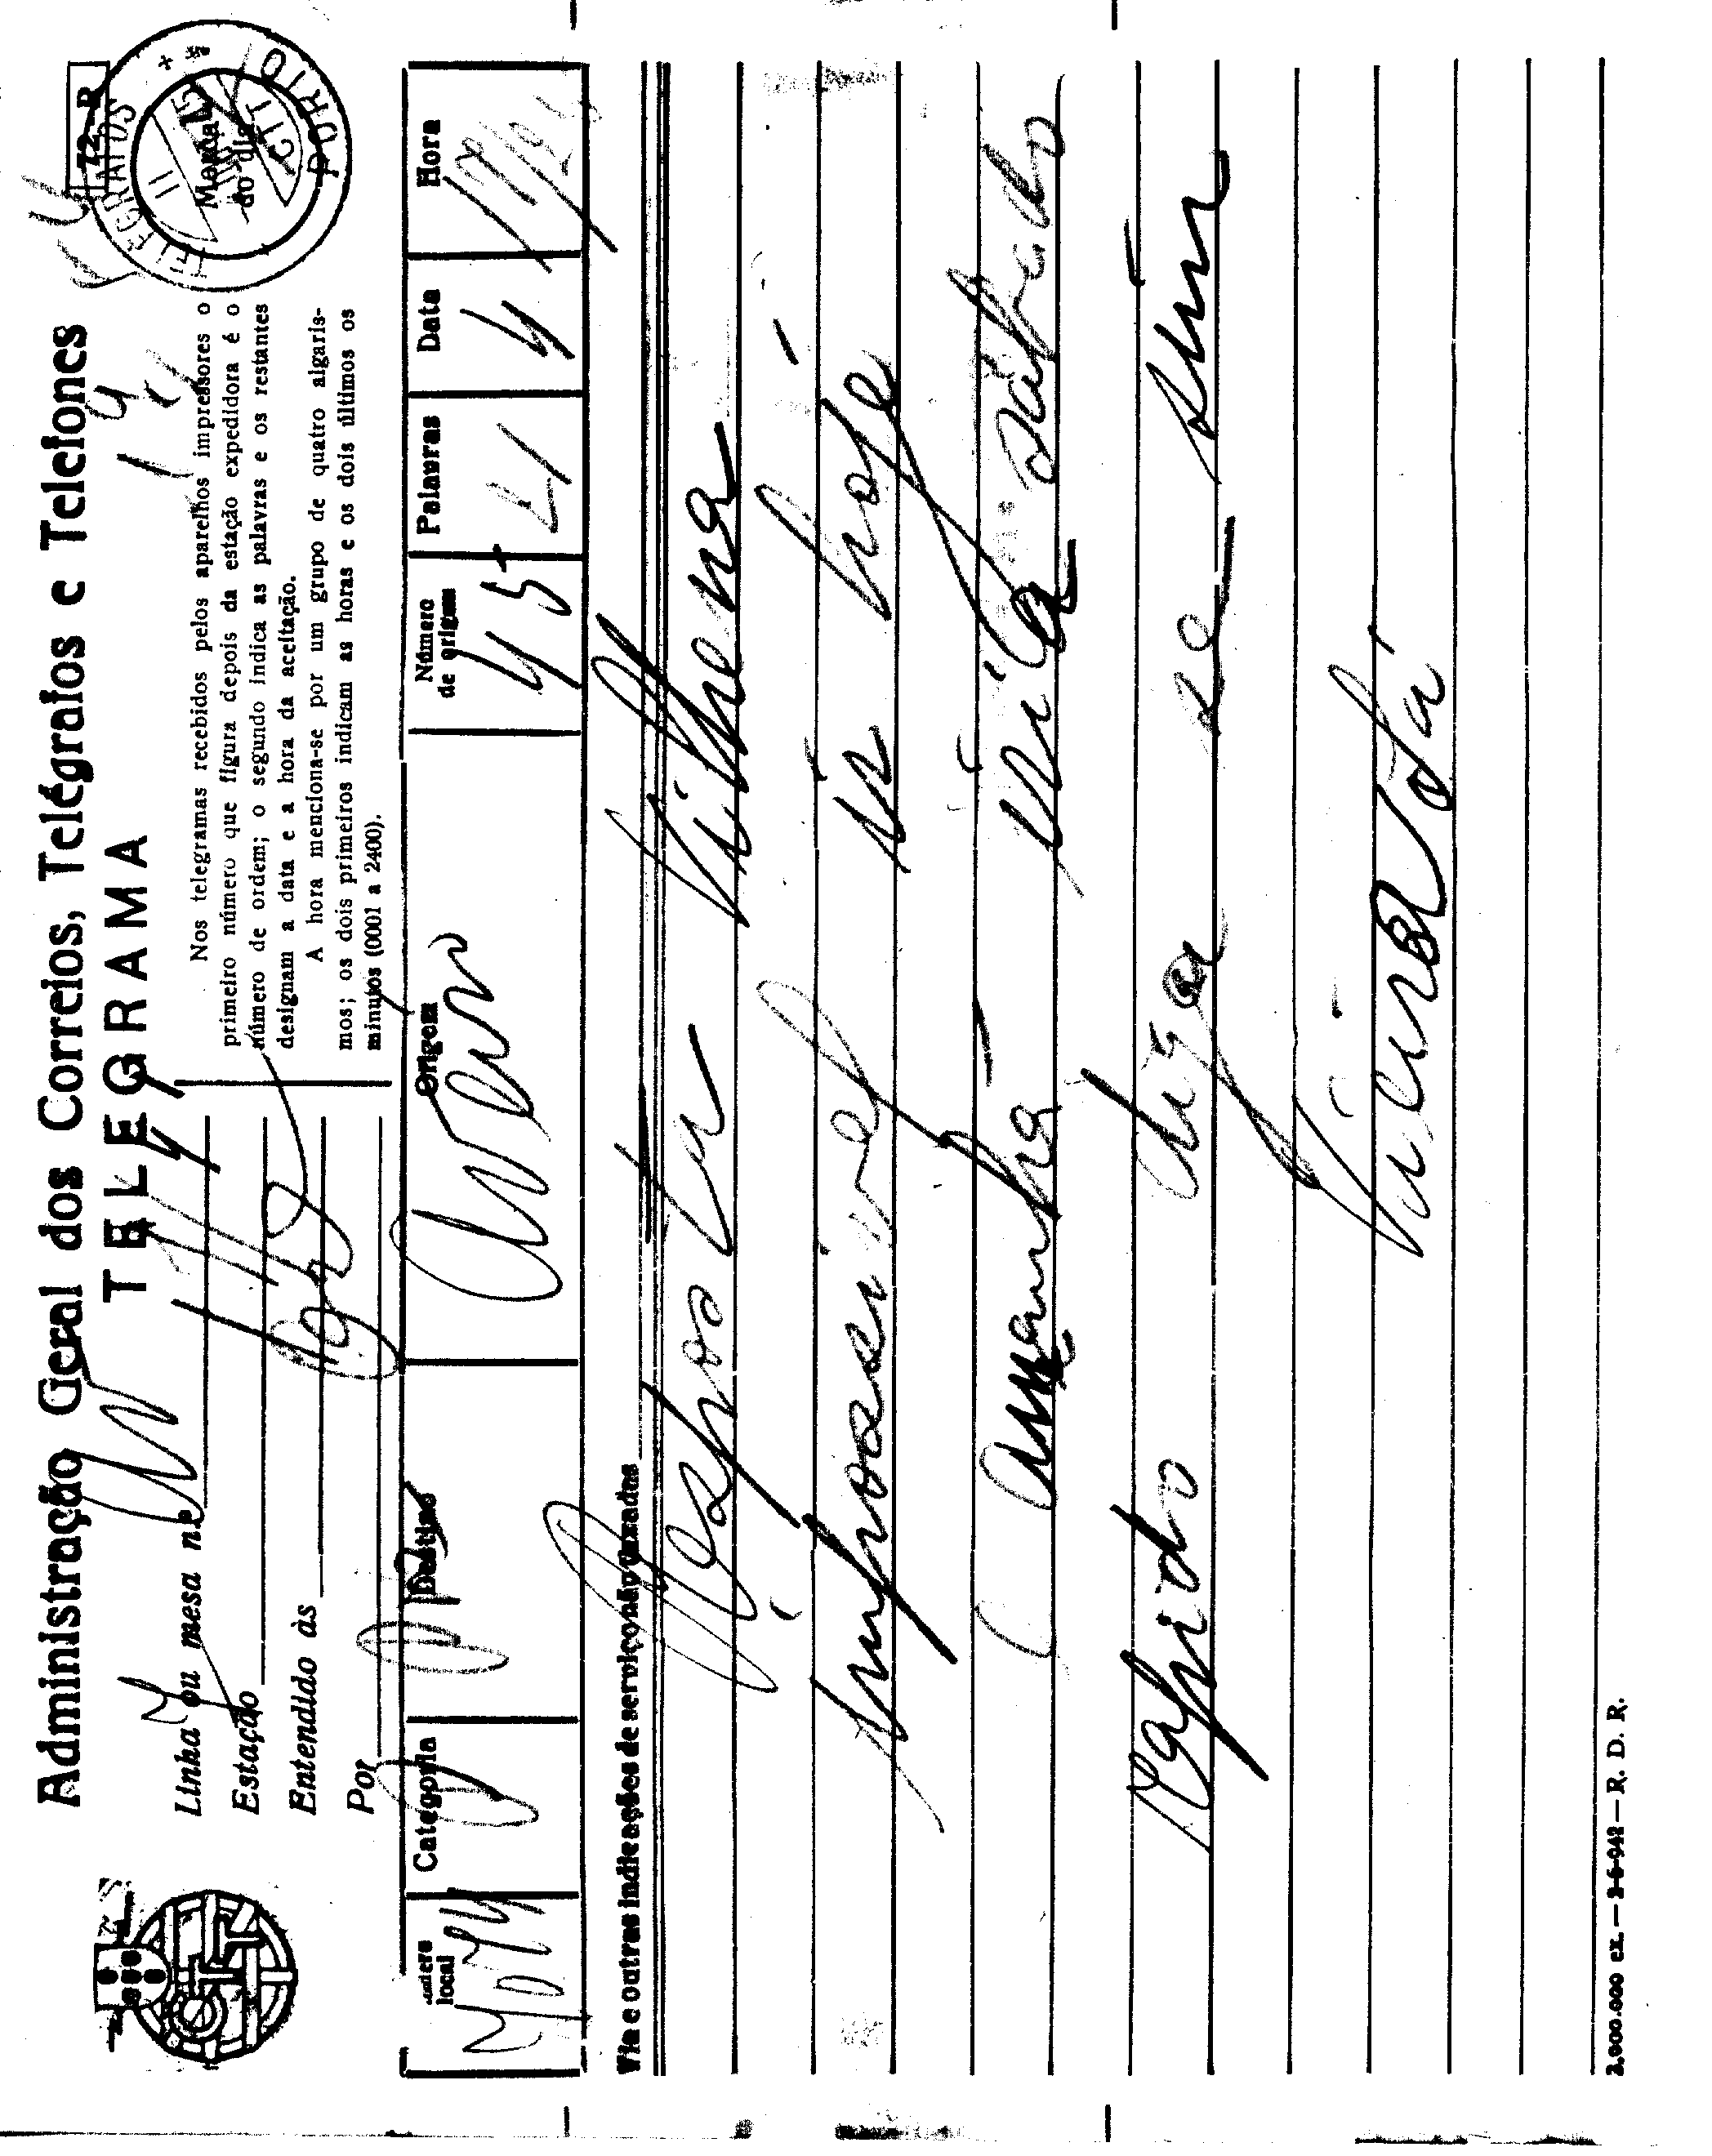 Administração Geral dos Correios, Telégrafos e Telefones
TELEGRAMA
72-R
TELEGRAFOS
PORTO
Marca do dia
Linha ou mesa n.º
Estação
Entendido às
Por
Nos telegramas recebidos pelos aparelhos impressores o
primeiro número que figura depois da estação expedidora é o
número de ordem; o segundo indica as palavras e os restantes
designam a data e a hora da aceitação.
A hora menciona-se por um grupo de quatro algaris-
mos; os dois primeiros indicam as horas e os dois últimos os
minutos (0001 a 2400).
local
Categoria
Destino
Origem
Número de origem
Palavras
Data
Hora
45
21
4
Via e outras indicações de serviço não taxadas
Vilhena
Impossivel ir hoje
Amanhã sabado
rapido diga se sim
Vieira de Sá
2.000.000 ex. — 2-6-942 — R. D. R.